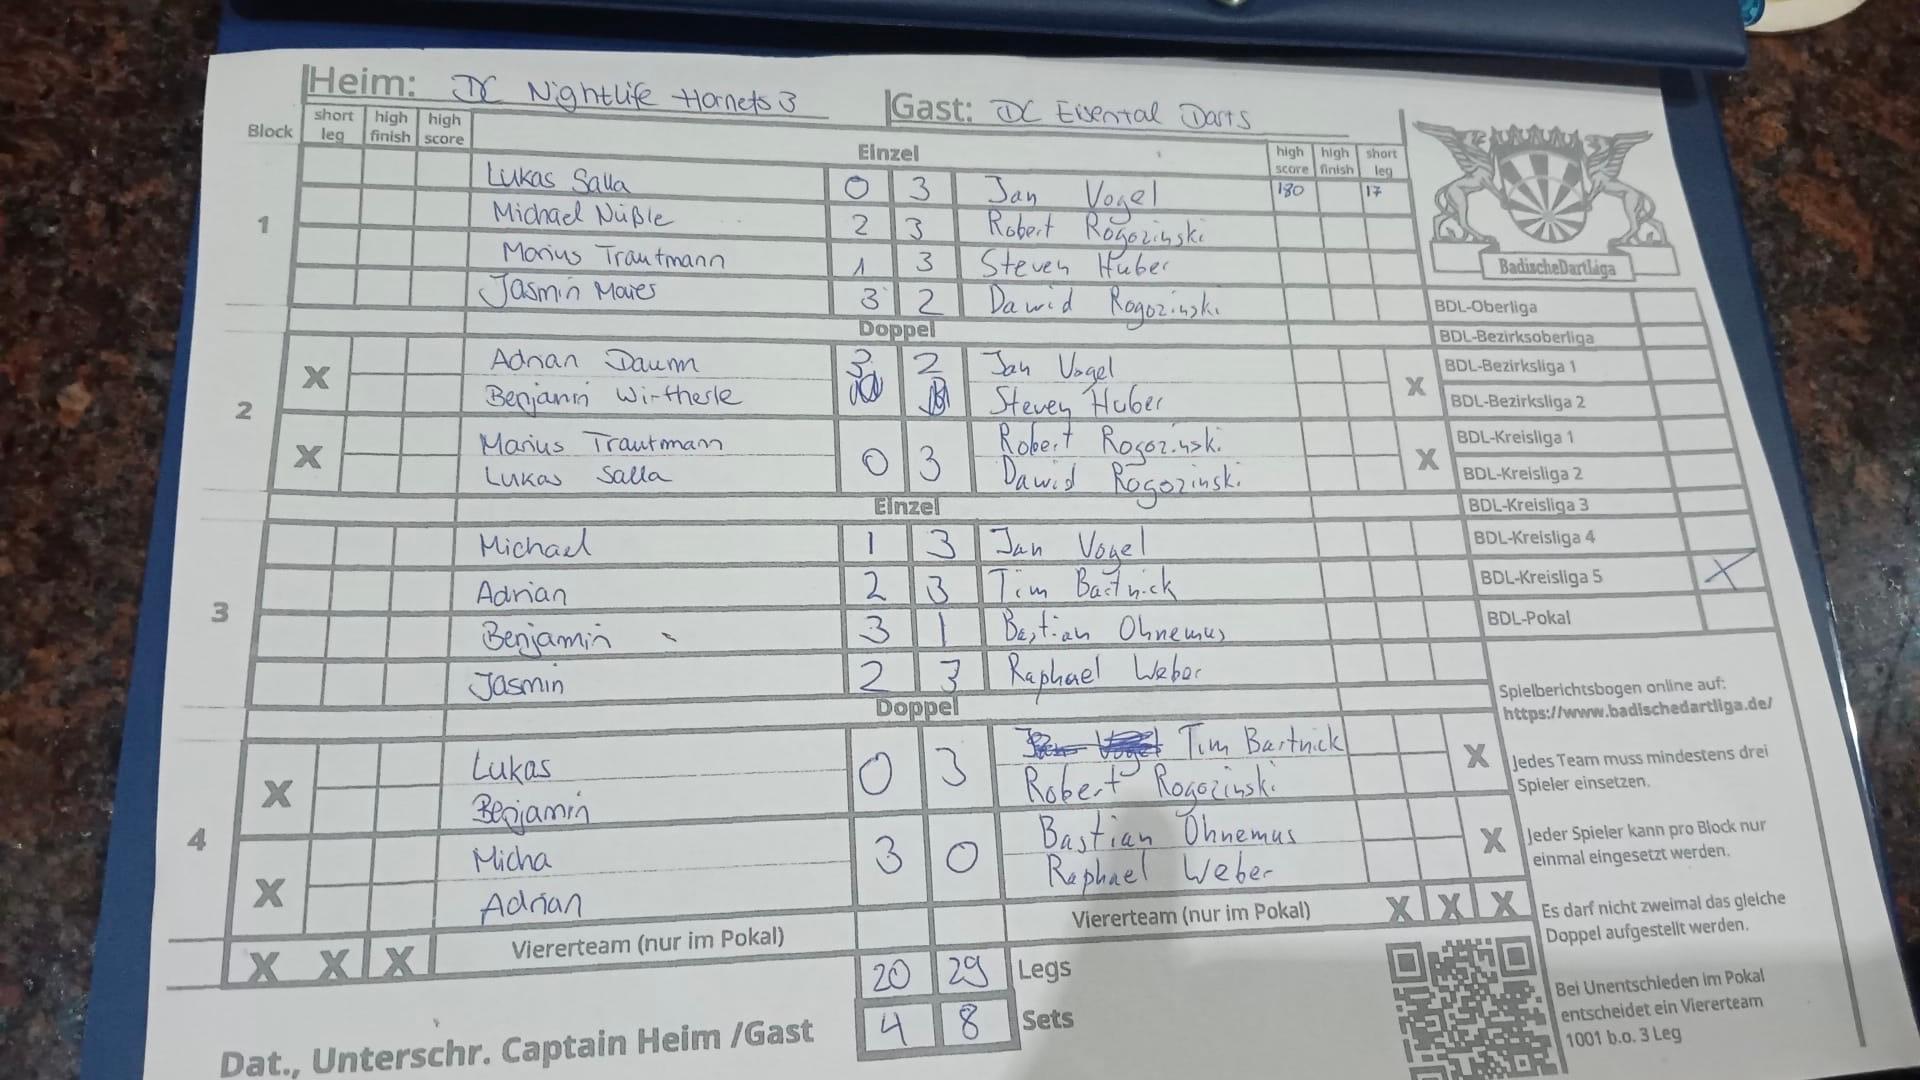 Heim: DC Nightlife Hornets 3 Gast: DC Eisental Darts
Block short leg high finish high score Einzel high score high finish short leg
1
Lukas Salla 0 3 Jan Vogel 180 17
Michael Nüßle 2 3 Robert Rogozinski
Marius Trautmann 1 3 Steven Huber
Jasmin Maies 3 2 Dawid Rogozinski
Doppel
2
X Adrian Daum 3 2 Jan Vogel X
Benjamin Wirtherle Steven Huber
X Marius Trautmann 0 3 Robert Rogozinski X
Lukas Salla Dawid Rogozinski
Einzel
3
Michael 1 3 Jan Vogel
Adrian 2 3 Tim Bartnick
Benjamin 3 1 Bastian Ohnemus
Jasmin 2 3 Raphael Weber
Doppel
4
X Lukas 0 3 Tim Bartnick X
Benjamin Robert Rogozinski
X Micha 3 0 Bastian Ohnemus X
Adrian Raphael Weber
X X X Viererteam (nur im Pokal) Viererteam (nur im Pokal) X X X
20 29 Legs
4 8 Sets
Dat., Unterschr. Captain Heim /Gast
BadischeDartLiga
BDL-Oberliga
BDL-Bezirksoberliga
BDL-Bezirksliga 1
BDL-Bezirksliga 2
BDL-Kreisliga 1
BDL-Kreisliga 2
BDL-Kreisliga 3
BDL-Kreisliga 4
BDL-Kreisliga 5 X
BDL-Pokal
Spielberichtsbogen online auf:
https://www.badischedartliga.de/
Jedes Team muss mindestens drei
Spieler einsetzen.
Jeder Spieler kann pro Block nur
einmal eingesetzt werden.
Es darf nicht zweimal das gleiche
Doppel aufgestellt werden.
Bei Unentschieden im Pokal
entscheidet ein Viererteam
1001 b.o. 3 Leg